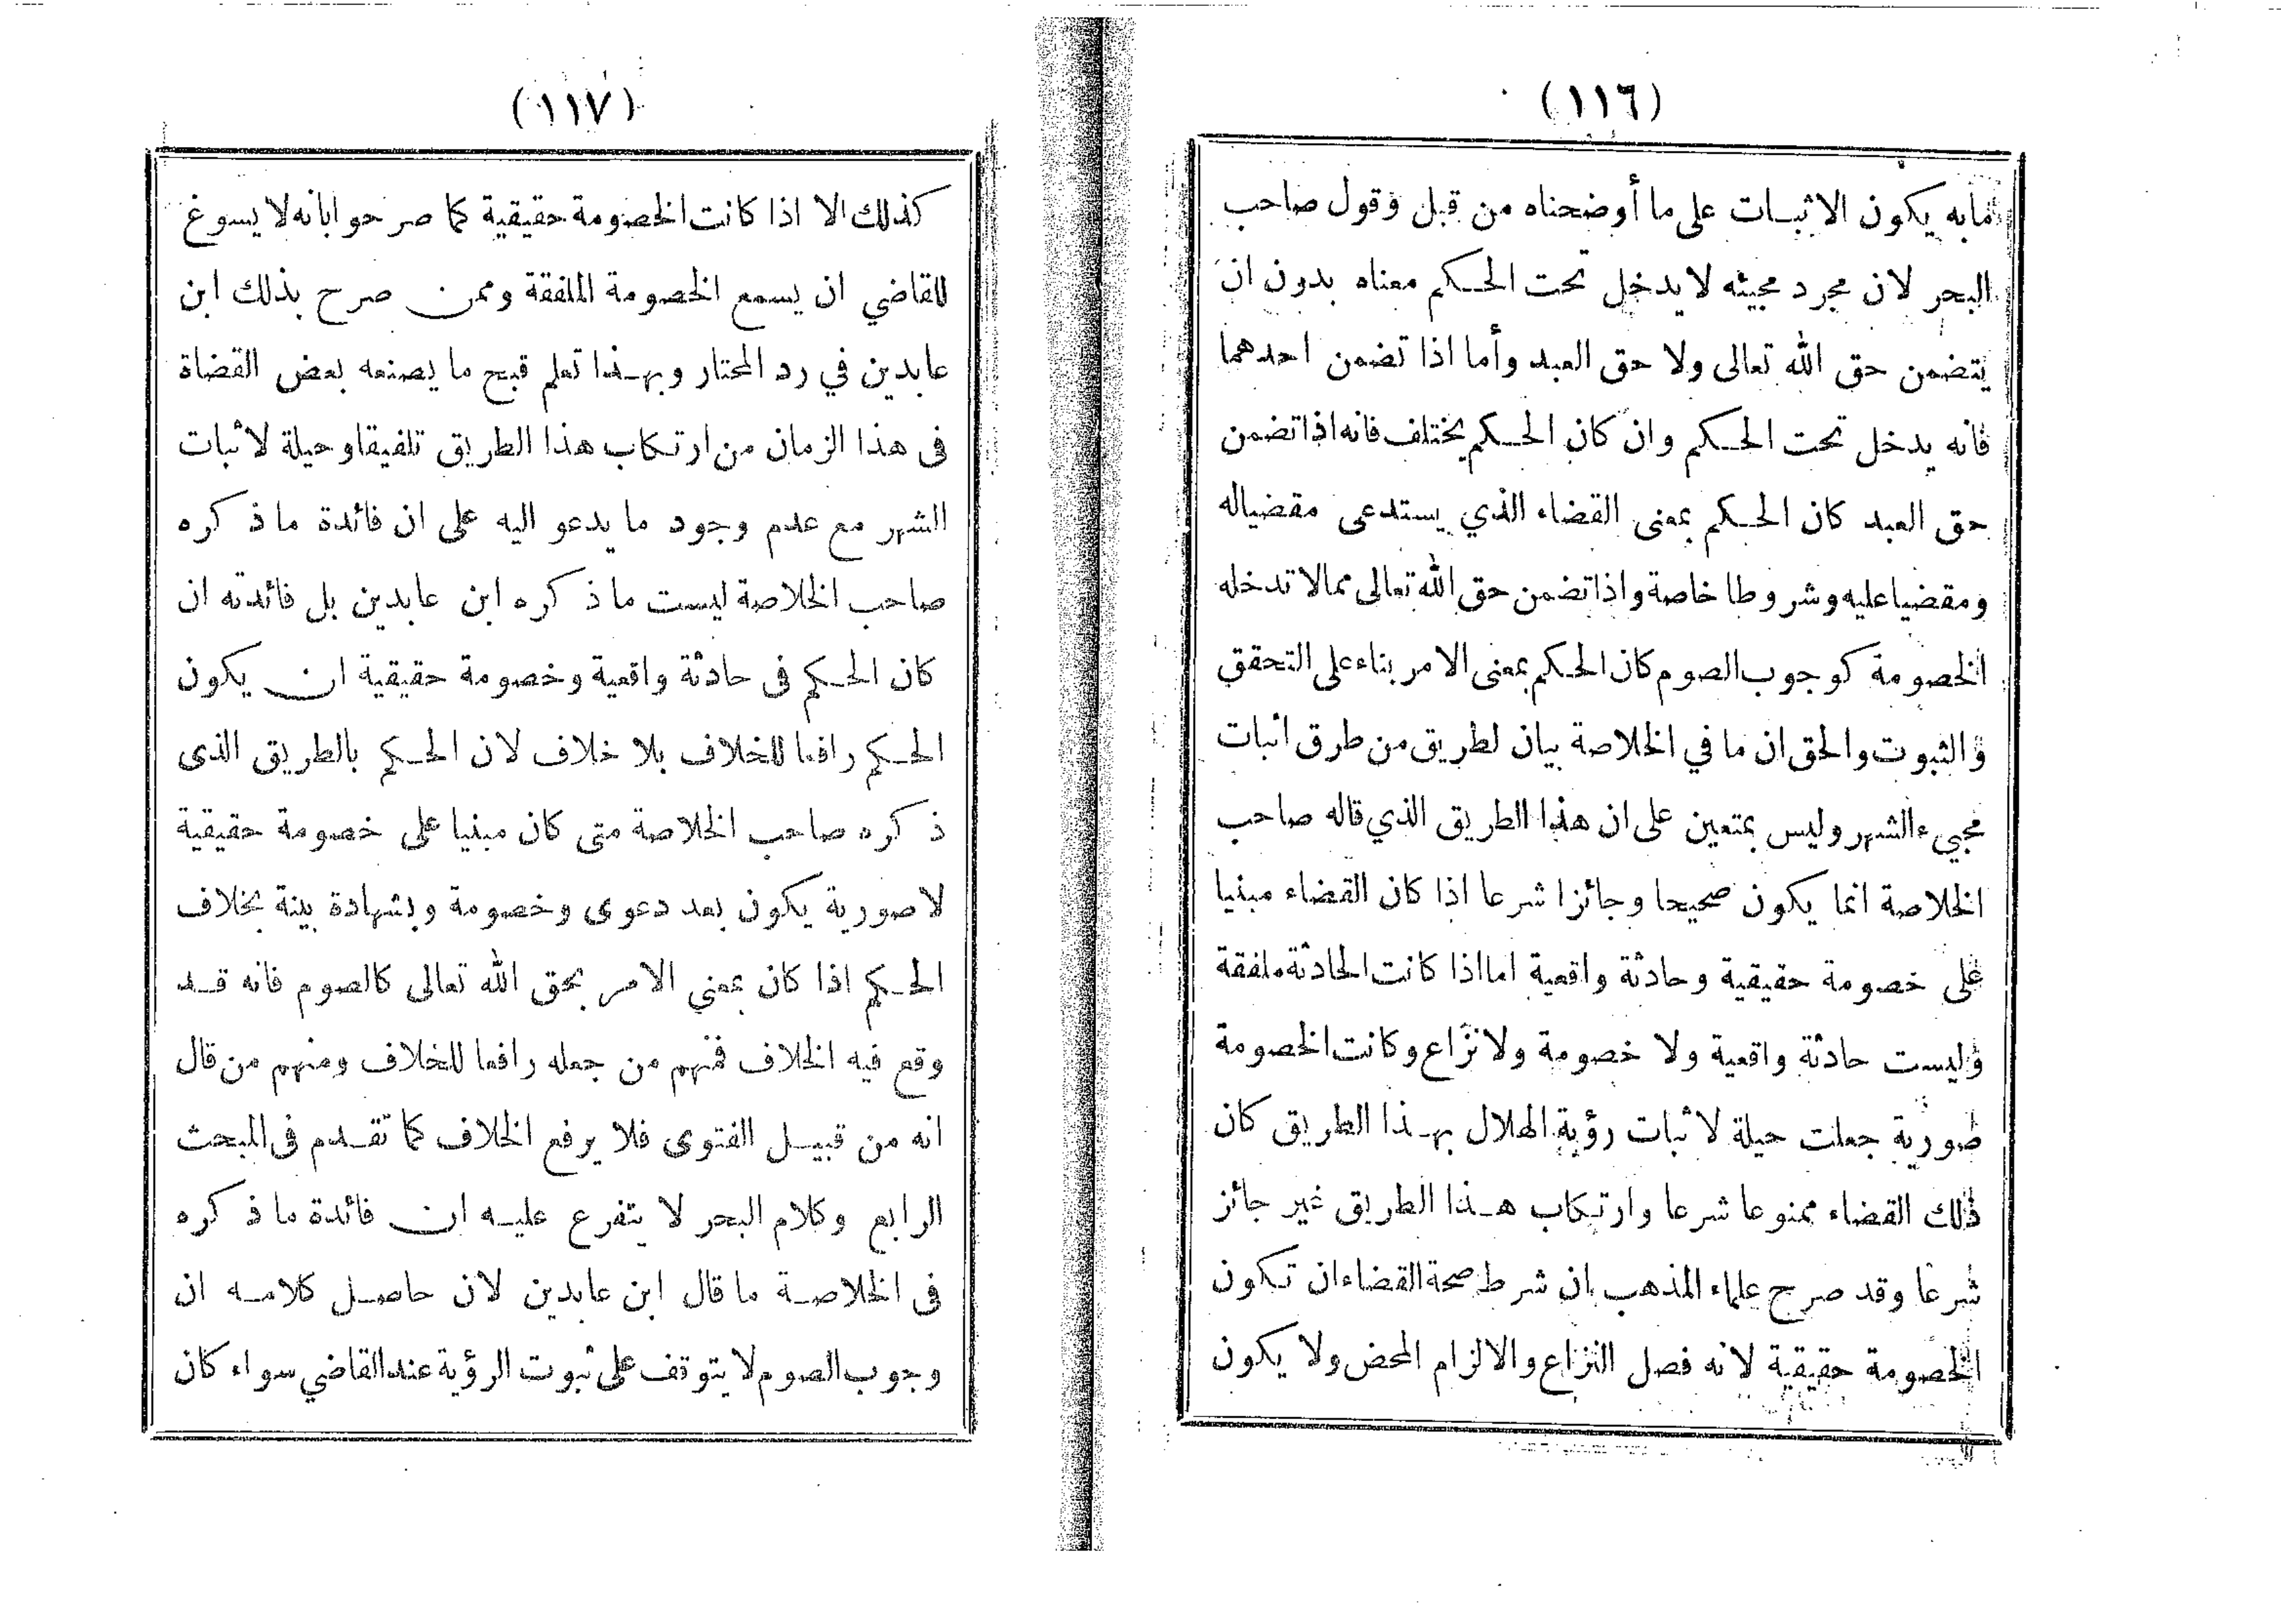 (١١٦)
مابه يكون الاثبات على ما أوضحناه من قبل وقول صاحب
البحر لان مجرد مجيئه لا يدخل تحت الحكم معناه بدون ان
يتضمن حق الله تعالى ولا حق العبد وأما اذا تضمن احدهما
فانه يدخل تحت الحكم وان كان الحكم يختلف فانه اذا تضمن
حق العبد كان الحكم بمعنى القضاء الذي يستدعى مقضياله
ومقضيا عليه وشروطا خاصة واذا تضمن حق الله تعالى ممالا تدخله
الخصومة كوجوب الصوم كان الحكم بمعنى الامر بناء على التحقق
والثبوت والحق ان ما في الخلاصة بيان لطريق من طرق اثبات
مجيء الشهر وليس بمتعين على ان هذا الطريق الذي قاله صاحب
الخلاصة انما يكون صحيحا وجائزا شرعا اذا كان القضاء مبنيا
على خصومة حقيقية وحادثة واقعية اما اذا كانت الحادثة ملفقة
وليست حادثة واقعية ولا خصومة ولا نزاع وكانت الخصومة
صورية جعلت حيلة لاثبات رؤية الهلال بهذا الطريق كان
ذلك القضاء ممنوعا شرعا وارتكاب هذا الطريق غير جائز
شرعا وقد صرح علماء المذهب بان شرط صحة القضاء ان تكون
الخصومة حقيقية لانه فصل النزاع والالزام المحض ولا يكون
(١١٧)
كذلك الا اذا كانت الخصومة حقيقية كما صرحوا بانه لا يسوغ
للقاضي ان يسمع الخصومة الملفقة وممن صرح بذلك ابن
عابدين في رد المحتار وبهذا تعلم قبح ما يصنعه بعض القضاة
فى هذا الزمان من ارتكاب هذا الطريق تلفيقا وحيلة لاثبات
الشهر مع عدم وجود ما يدعو اليه على ان فائدة ما ذكره
صاحب الخلاصة ليست ما ذكره ابن عابدين بل فائدته ان
كان الحكم فى حادثة واقعية وخصومة حقيقية ان يكون
الحكم رافعا للخلاف بلا خلاف لان الحكم بالطريق الذى
ذكره صاحب الخلاصة متى كان مبنيا على خصومة حقيقية
لا صورية يكون بعد دعوى وخصومة وبشهادة بينة بخلاف
الحكم اذا كان بمعنى الامر بحق الله تعالى كالصوم فانه قد
وقع فيه الخلاف فمنهم من جعله رافعا للخلاف ومنهم من قال
انه من قبيل الفتوى فلا يرفع الخلاف كما تقدم فى المبحث
الرابع وكلام البحر لا يتفرع عليه ان فائدة ما ذكره
فى الخلاصة ما قال ابن عابدين لان حاصل كلامه ان
وجوب الصوم لا يتوقف على ثبوت الرؤية عند القاضي سواء كان